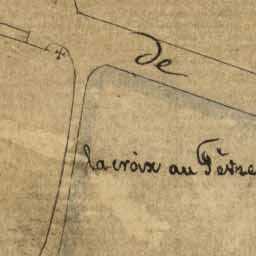 de
la croix au Père